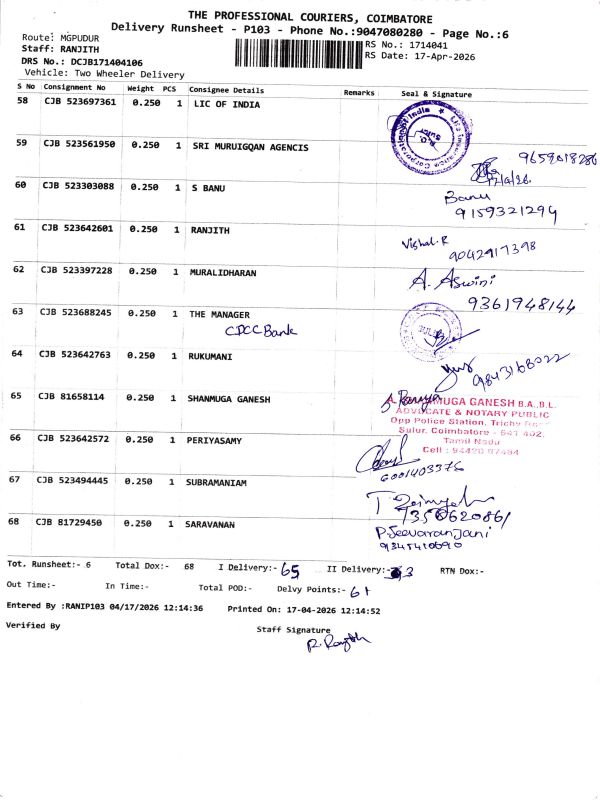 THE PROFESSIONAL COURIERS, COIMBATORE
Delivery Runsheet - P103 - Phone No.:9047080280 - Page No.:6
Route: MGPUDUR
RS No.: 1714041
Staff: RANJITH
RS Date: 17-Apr-2026
DRS No.: DCJB171404106
Vehicle: Two Wheeler Delivery
S No Consignment No Weight PCS Consignee Details Remarks Seal & Signature
58 CJB 523697361 0.250 1 LIC OF INDIA
59 CJB 523561950 0.250 1 SRI MURUIGQAN AGENCIS 9659018286
60 CJB 523303088 0.250 1 S BANU Banu
9159321294
61 CJB 523642601 0.250 1 RANJITH Vishal.R
9042917398
62 CJB 523397228 0.250 1 MURALIDHARAN A. Aswini
9361948144
63 CJB 523688245 0.250 1 THE MANAGER
CDCC Bank
64 CJB 523642763 0.250 1 RUKUMANI 9843168022
65 CJB 81658114 0.250 1 SHANMUGA GANESH
MUGA GANESH B.A.,B.L.
ADVOCATE & NOTARY PUBLIC
Opp Police Station, Trichy
Sulur, Coimbatore - 641 402.
Tamil Nadu
Cell : 94420
66 CJB 523642572 0.250 1 PERIYASAMY
6001403376
67 CJB 523494445 0.250 1 SUBRAMANIAM
68 CJB 81729450 0.250 1 SARAVANAN P.Jeevaranjani
9345410690
Tot. Runsheet:- 6 Total Dox:- 68 I Delivery:- 65 II Delivery:- 3 RTN Dox:-
Out Time:- In Time:- Total POD:- Delvy Points:- 61
Entered By :RANIP103 04/17/2026 12:14:36 Printed On: 17-04-2026 12:14:52
Verified By Staff Signature